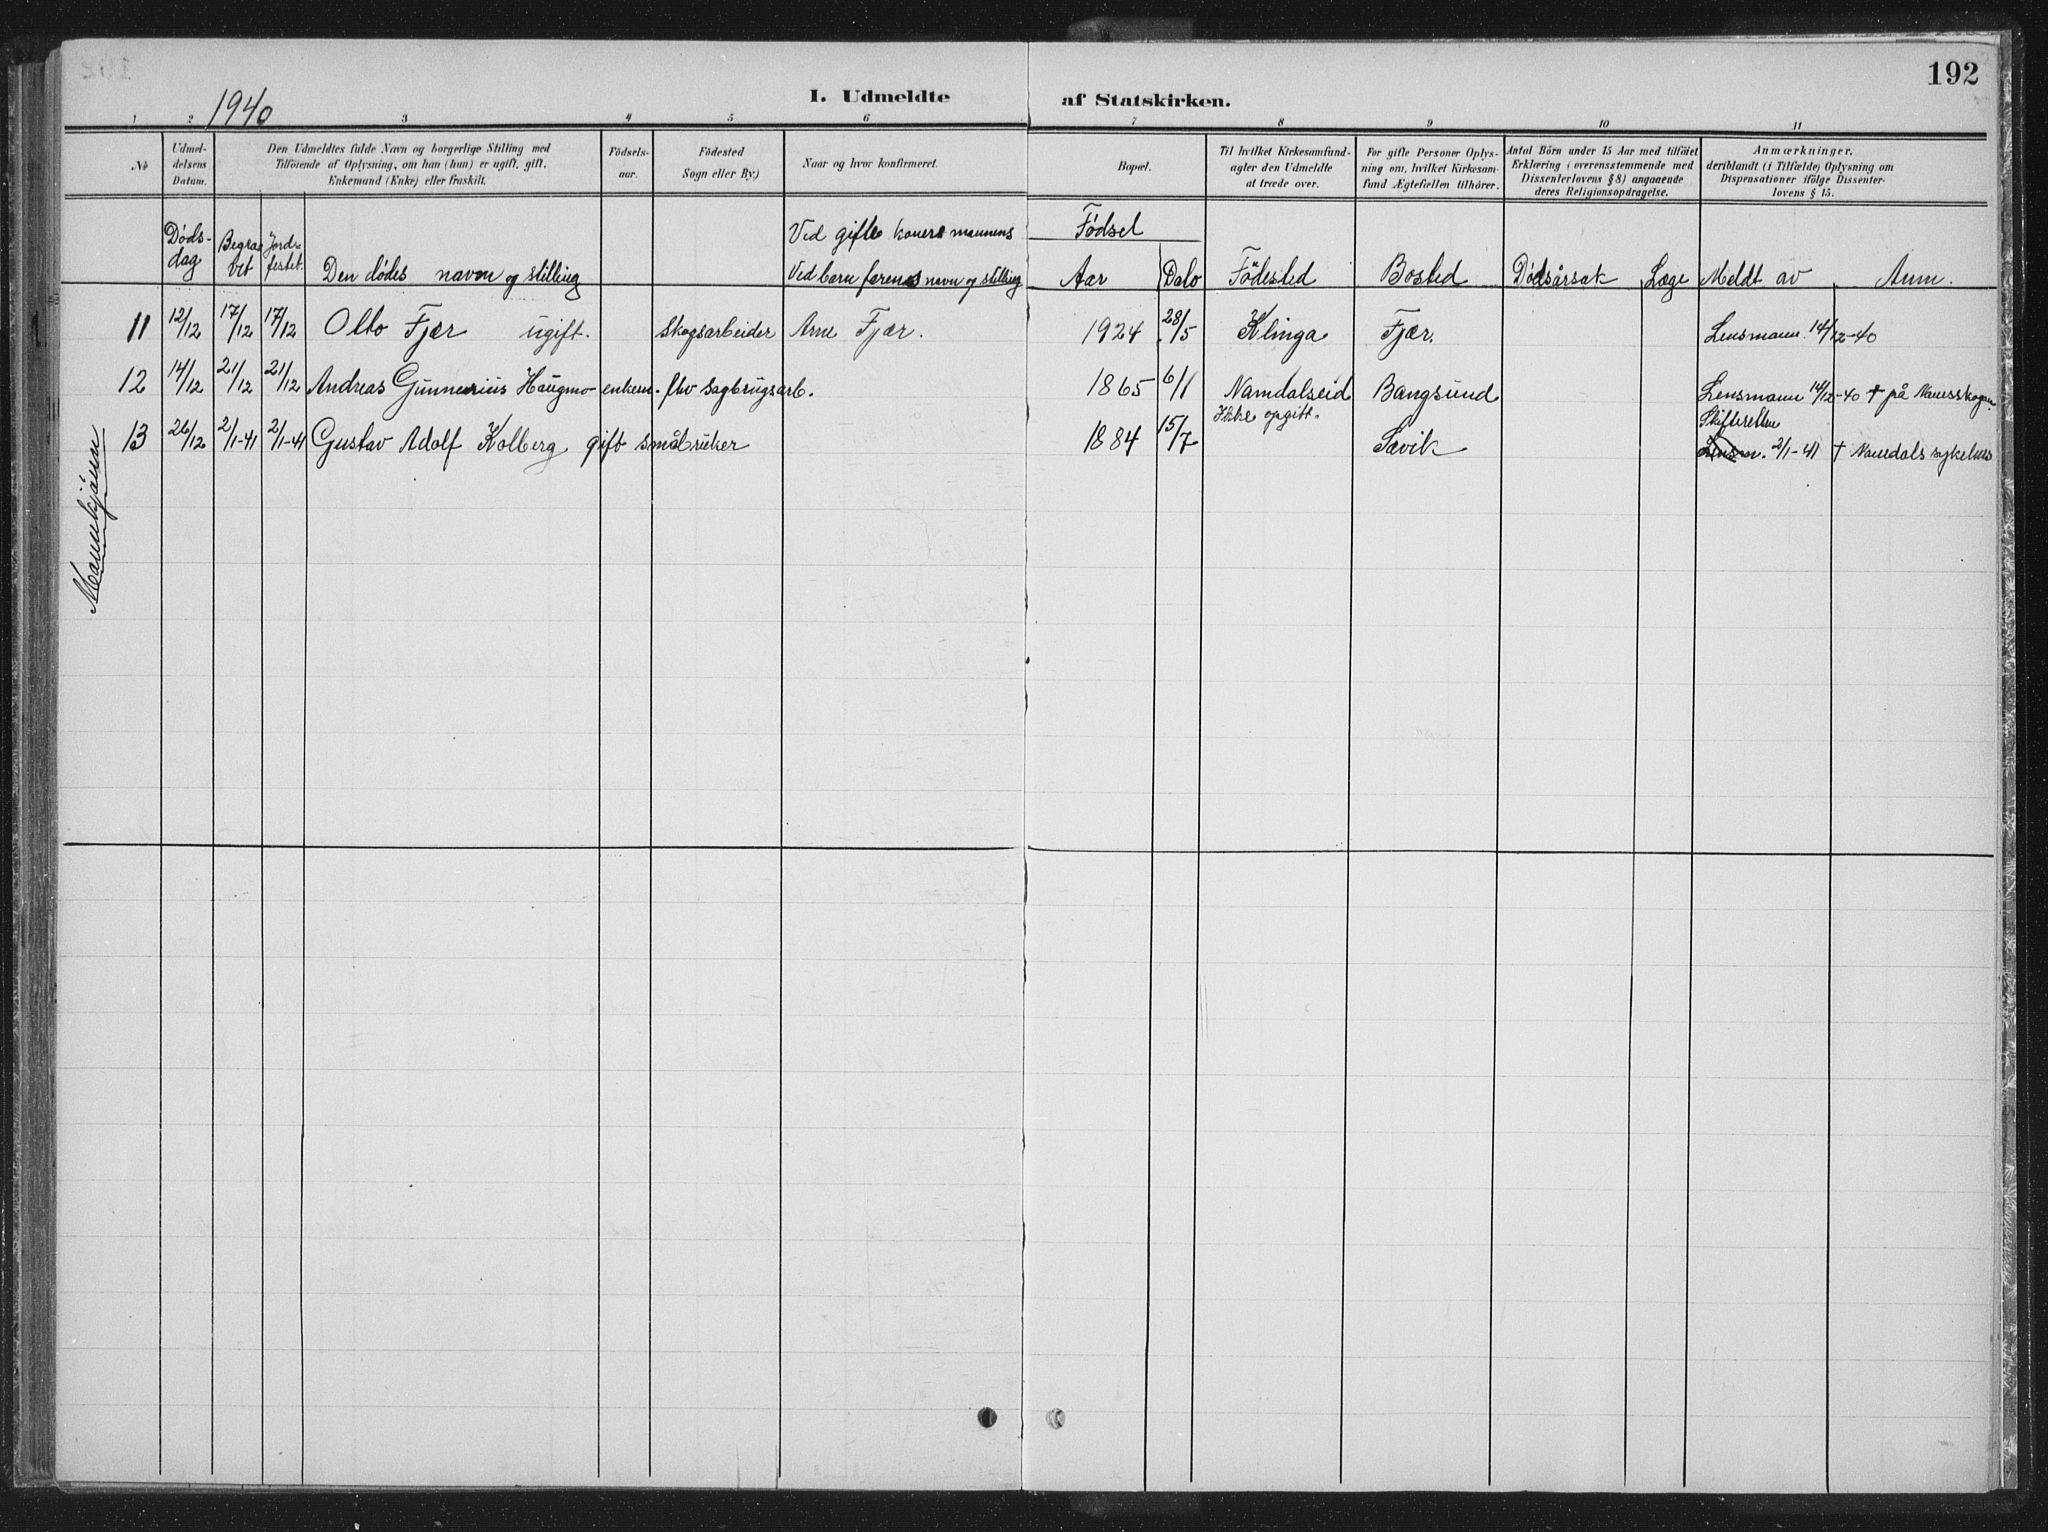 192
1940
I. Udmeldte af Statskirken.
1 2 3 4 5 6 7 8 9 10 11
No
Udmel-
delsens
Datum.
Den Udmeldtes fulde Navn og borgerlige Stilling med
Tilföiende af Oplysning, om han (hun) er ugift, gift,
Enkemand (Enke) eller fraskilt.
Födsels-
aar.
Födested
Sogn eller By.)
Naar og hvor konfirmeret.
Bopæl.
Til hvilket Kirkesamfund-
agter den Udmeldte
at træde over.
For gifte Personer Oplys-
ning om, hvilket Kirkesam-
fund Ægtefællen tilhörer.
Antal Börn under 15 Aar med tilföiet
Erklæring (overensstemmende med
Dissenterlovens § 8) angaaende
deres Religionsopdragelse.
Anmærkninger,
deriblandt (i Tilfælde) Oplysning om
Dispensationer ifölge Dissenter-
lovens § 15.
Døds-
dag
Begra-
vet
Jords-
festet.
Den dødes navn og stilling
Ved gifte koners mannens
Ved barn farens navn og stilling
Fødsel
Aar Dato Födested Bosted Dødsårsak Læge Meldt av Anm.
11 12/12 17/12 17/12 Otto Fjær ugift. Skogsarbeider Arne Fjær. 1924 28/5 Klinga Fjær. Lensmann 14/12-40
12 14/12 21/12 21/12 Andreas Gunnerius Haugmo enkem. fhv sagbrugsarb. 1865 6/1 Namdalseid Bangsund Lensmann 14/12-40 † på
13 26/12 2/1-41 2/1-41 Gustav Adolf Kolberg gift småbruker 1884 15/7 Ikke opgitt. Sævik Skifteretten
Lensm. 2/1-41 † Namdals sykehus